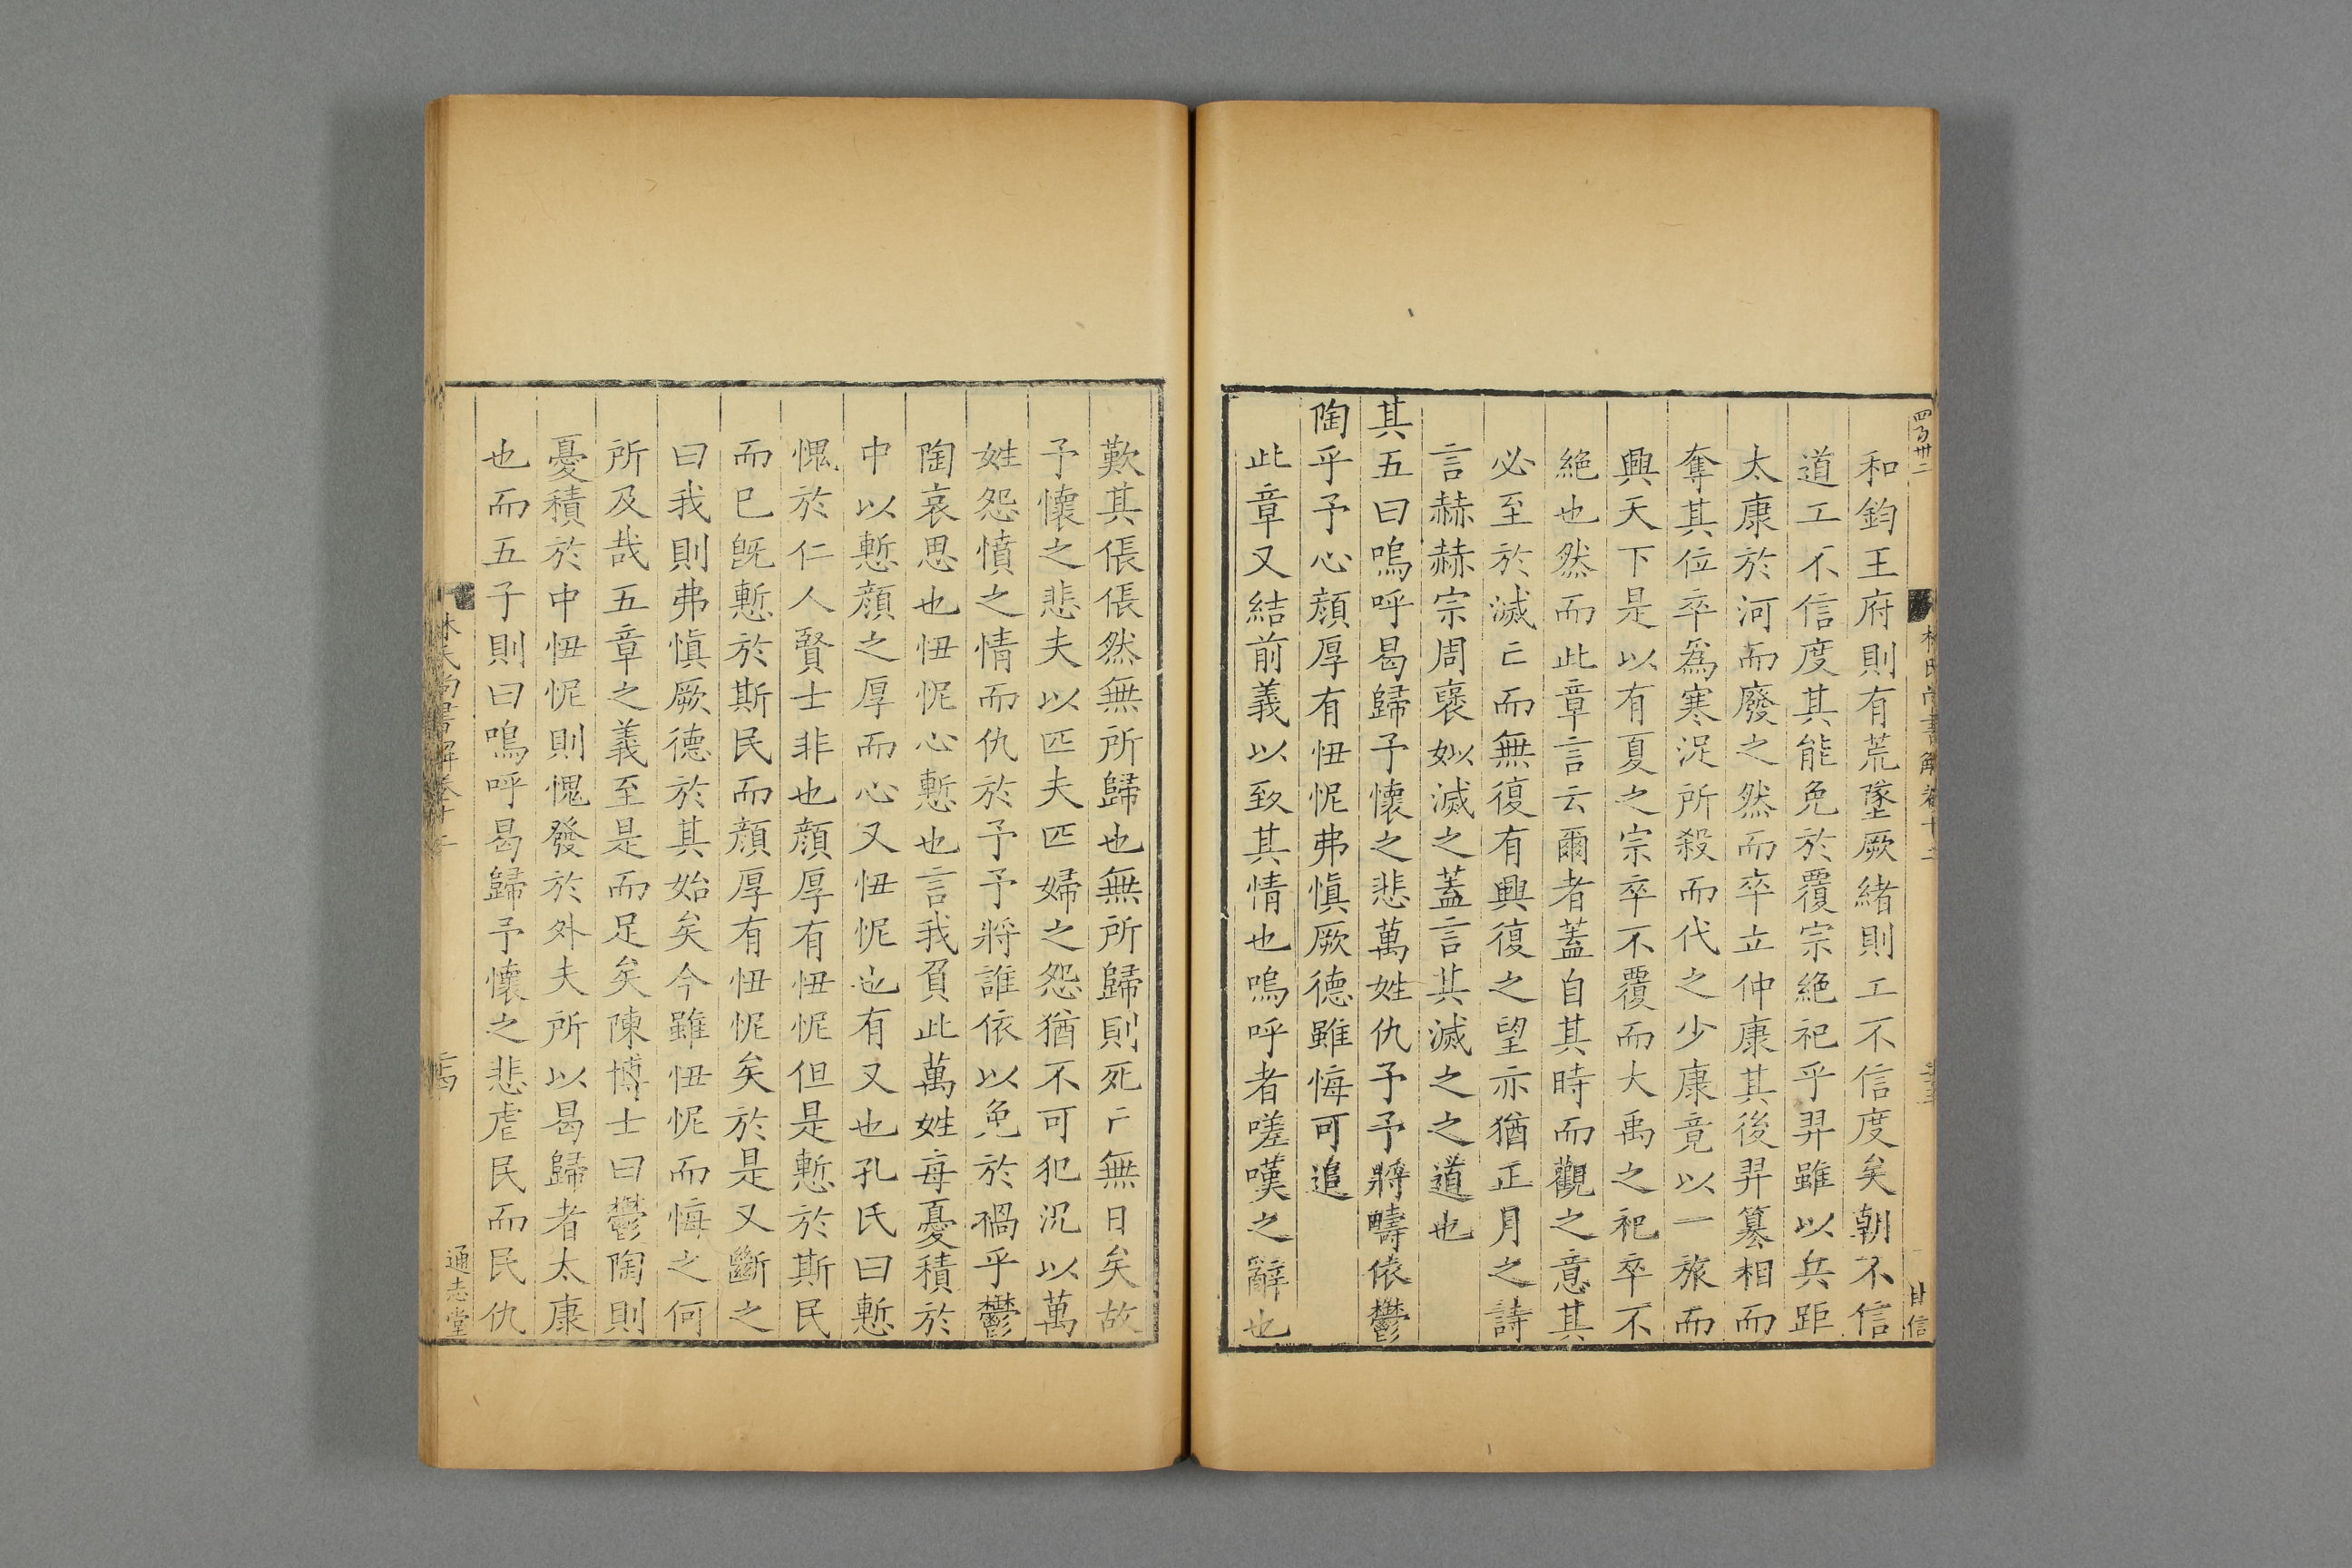 四百卅二
林氏尚書解卷十二
甘信
和鈞王府則有荒墜厥緒則工不信度矣朝不信
道工不信度其能免於覆宗絶祀乎羿雖以兵距
太康於河而廢之然而卒立仲康其後羿簒相而
奪其位卒爲寒浞所殺而代之少康竟以一旅而
興天下是以有夏之宗卒不覆而大禹之祀卒不
絶也然而此章言云爾者蓋自其時而觀之意其
必至於滅亡而無復有興復之望亦猶正月之詩
言赫赫宗周襃姒滅之蓋言其滅之之道也
其五曰嗚呼曷歸予懷之悲萬姓仇予予將疇依鬱
陶乎予心顔厚有忸怩弗愼厥德雖悔可追
此章又結前義以致其情也嗚呼者嗟嘆之辭也
歎其倀倀然無所歸也無所歸則死亡無日矣故
予懷之悲夫以匹夫匹婦之怨猶不可犯況以萬
姓怨憤之情而仇於予予將誰依以免於禍乎鬱
陶哀思也忸怩心慙也言我負此萬姓每憂積於
中以慙顔之厚而心又忸怩也有又也孔氏曰慙
愧於仁人賢士非也顔厚有忸怩但是慙於斯民
而已旣慙於斯民而顔厚有忸怩矣於是又斷之
曰我則弗愼厥德於其始矣今雖忸怩而悔之何
所及哉五章之義至是而足矣陳博士曰鬱陶則
憂積於中忸怩則愧發於外夫所以曷歸者太康
也而五子則曰嗚呼曷歸予懷之悲虐民而民仇
林氏尚書解卷十二
通志堂